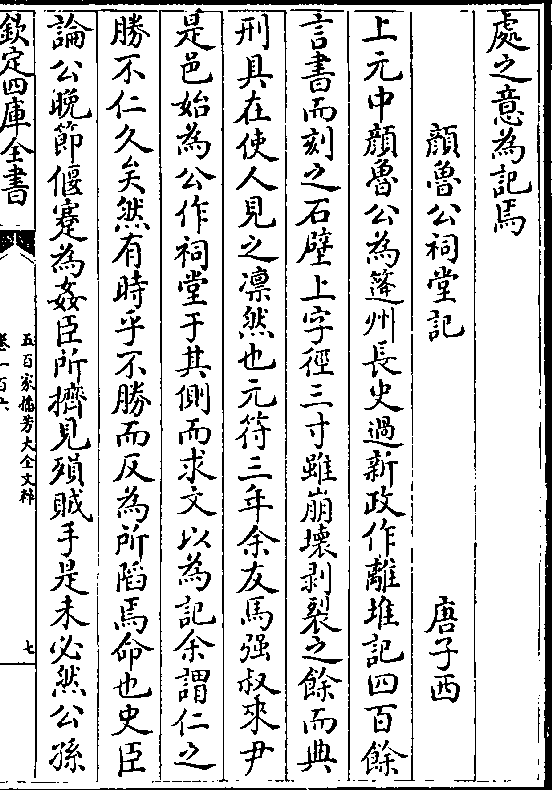 處之意為記焉
顔魯公祠堂記 唐子西
上元中顔魯公為蓬州長史過新政作離堆記四百餘
言書而刻之石壁上字徑三寸雖崩壞剥裂之餘而典
刑具在使人見之凛然也元符三年余友馬强叔來尹
是邑始為公作祠堂于其側而求文以為記余謂仁之
勝不仁久矣然有時乎不勝而反為所陷焉命也史臣
論公晚節偃蹇為姦臣所擠見殞賊手是未必然公孫
欽定四庫全書
五百家播芳大全文粹
卷一百六
七